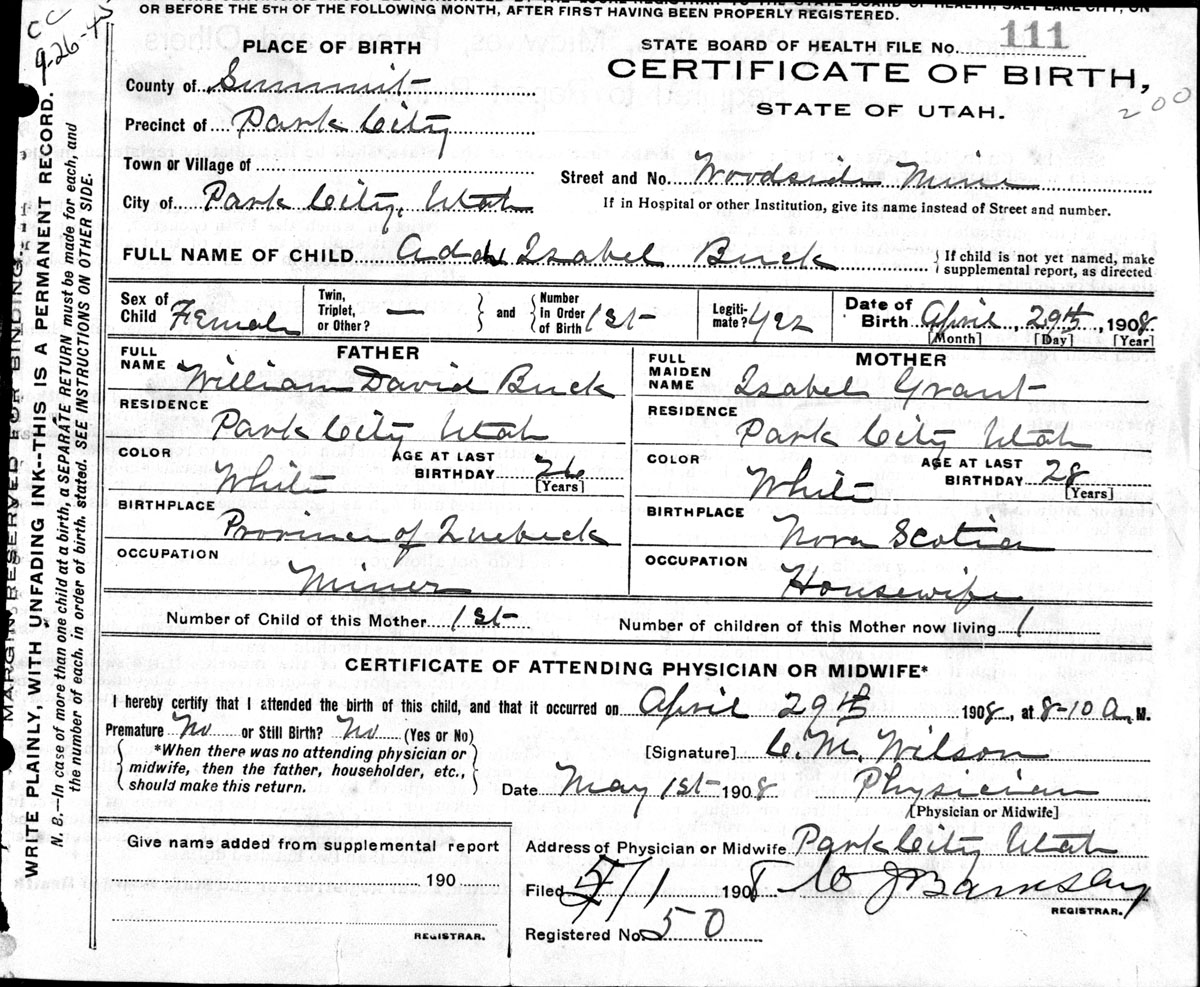 OR BEFORE THE 5TH OF THE FOLLOWING MONTH, AFTER FIRST HAVING BEEN PROPERLY REGISTERED.
CC
9-26-45
PLACE OF BIRTH
STATE BOARD OF HEALTH FILE No. 111
CERTIFICATE OF BIRTH,
STATE OF UTAH.
200
County of Summit
Precinct of Park City
Town or Village of
Street and No. Woodside Mine
City of Park City, Utah
If in Hospital or other Institution, give its name instead of Street and number.
FULL NAME OF CHILD Isabel Buck
{If child is not yet named, make
supplemental report, as directed
Sex of Child Female
Twin, Triplet, or Other? —
and
Number in Order of Birth 1st
Legitimate? Yes
Date of Birth April 29th, 1908
[Month] [Day] [Year]
FATHER
FULL NAME William David Buck
RESIDENCE
Park City Utah
COLOR White
AGE AT LAST BIRTHDAY 26
[Years]
BIRTHPLACE
Province of Quebeck
OCCUPATION
Miner
MOTHER
FULL MAIDEN NAME Isabel Grant
RESIDENCE
Park City Utah
COLOR White
AGE AT LAST BIRTHDAY 28
[Years]
BIRTHPLACE
Nova Scotia
OCCUPATION
Housewife
Number of Child of this Mother 1st
Number of children of this Mother now living 1
CERTIFICATE OF ATTENDING PHYSICIAN OR MIDWIFE*
I hereby certify that I attended the birth of this child, and that it occurred on April 29th 1908, at 8-10 A. M.
Premature No or Still Birth? No (Yes or No)
*When there was no attending physician or
midwife, then the father, householder, etc.,
should make this return.
[Signature] C. M. Wilson
Date May 1st 1908 Physician
[Physician or Midwife]
Give name added from supplemental report
190
REGISTRAR.
Address of Physician or Midwife Park City Utah
Filed 5/1 1908
REGISTRAR.
Registered No. 50
MARGIN RESERVED FOR BINDING.
WRITE PLAINLY, WITH UNFADING INK--THIS IS A PERMANENT RECORD.
N. B.--In case of more than one child at a birth, a SEPARATE RETURN must be made for each, and
the number of each, in order of birth, stated. SEE INSTRUCTIONS ON OTHER SIDE.